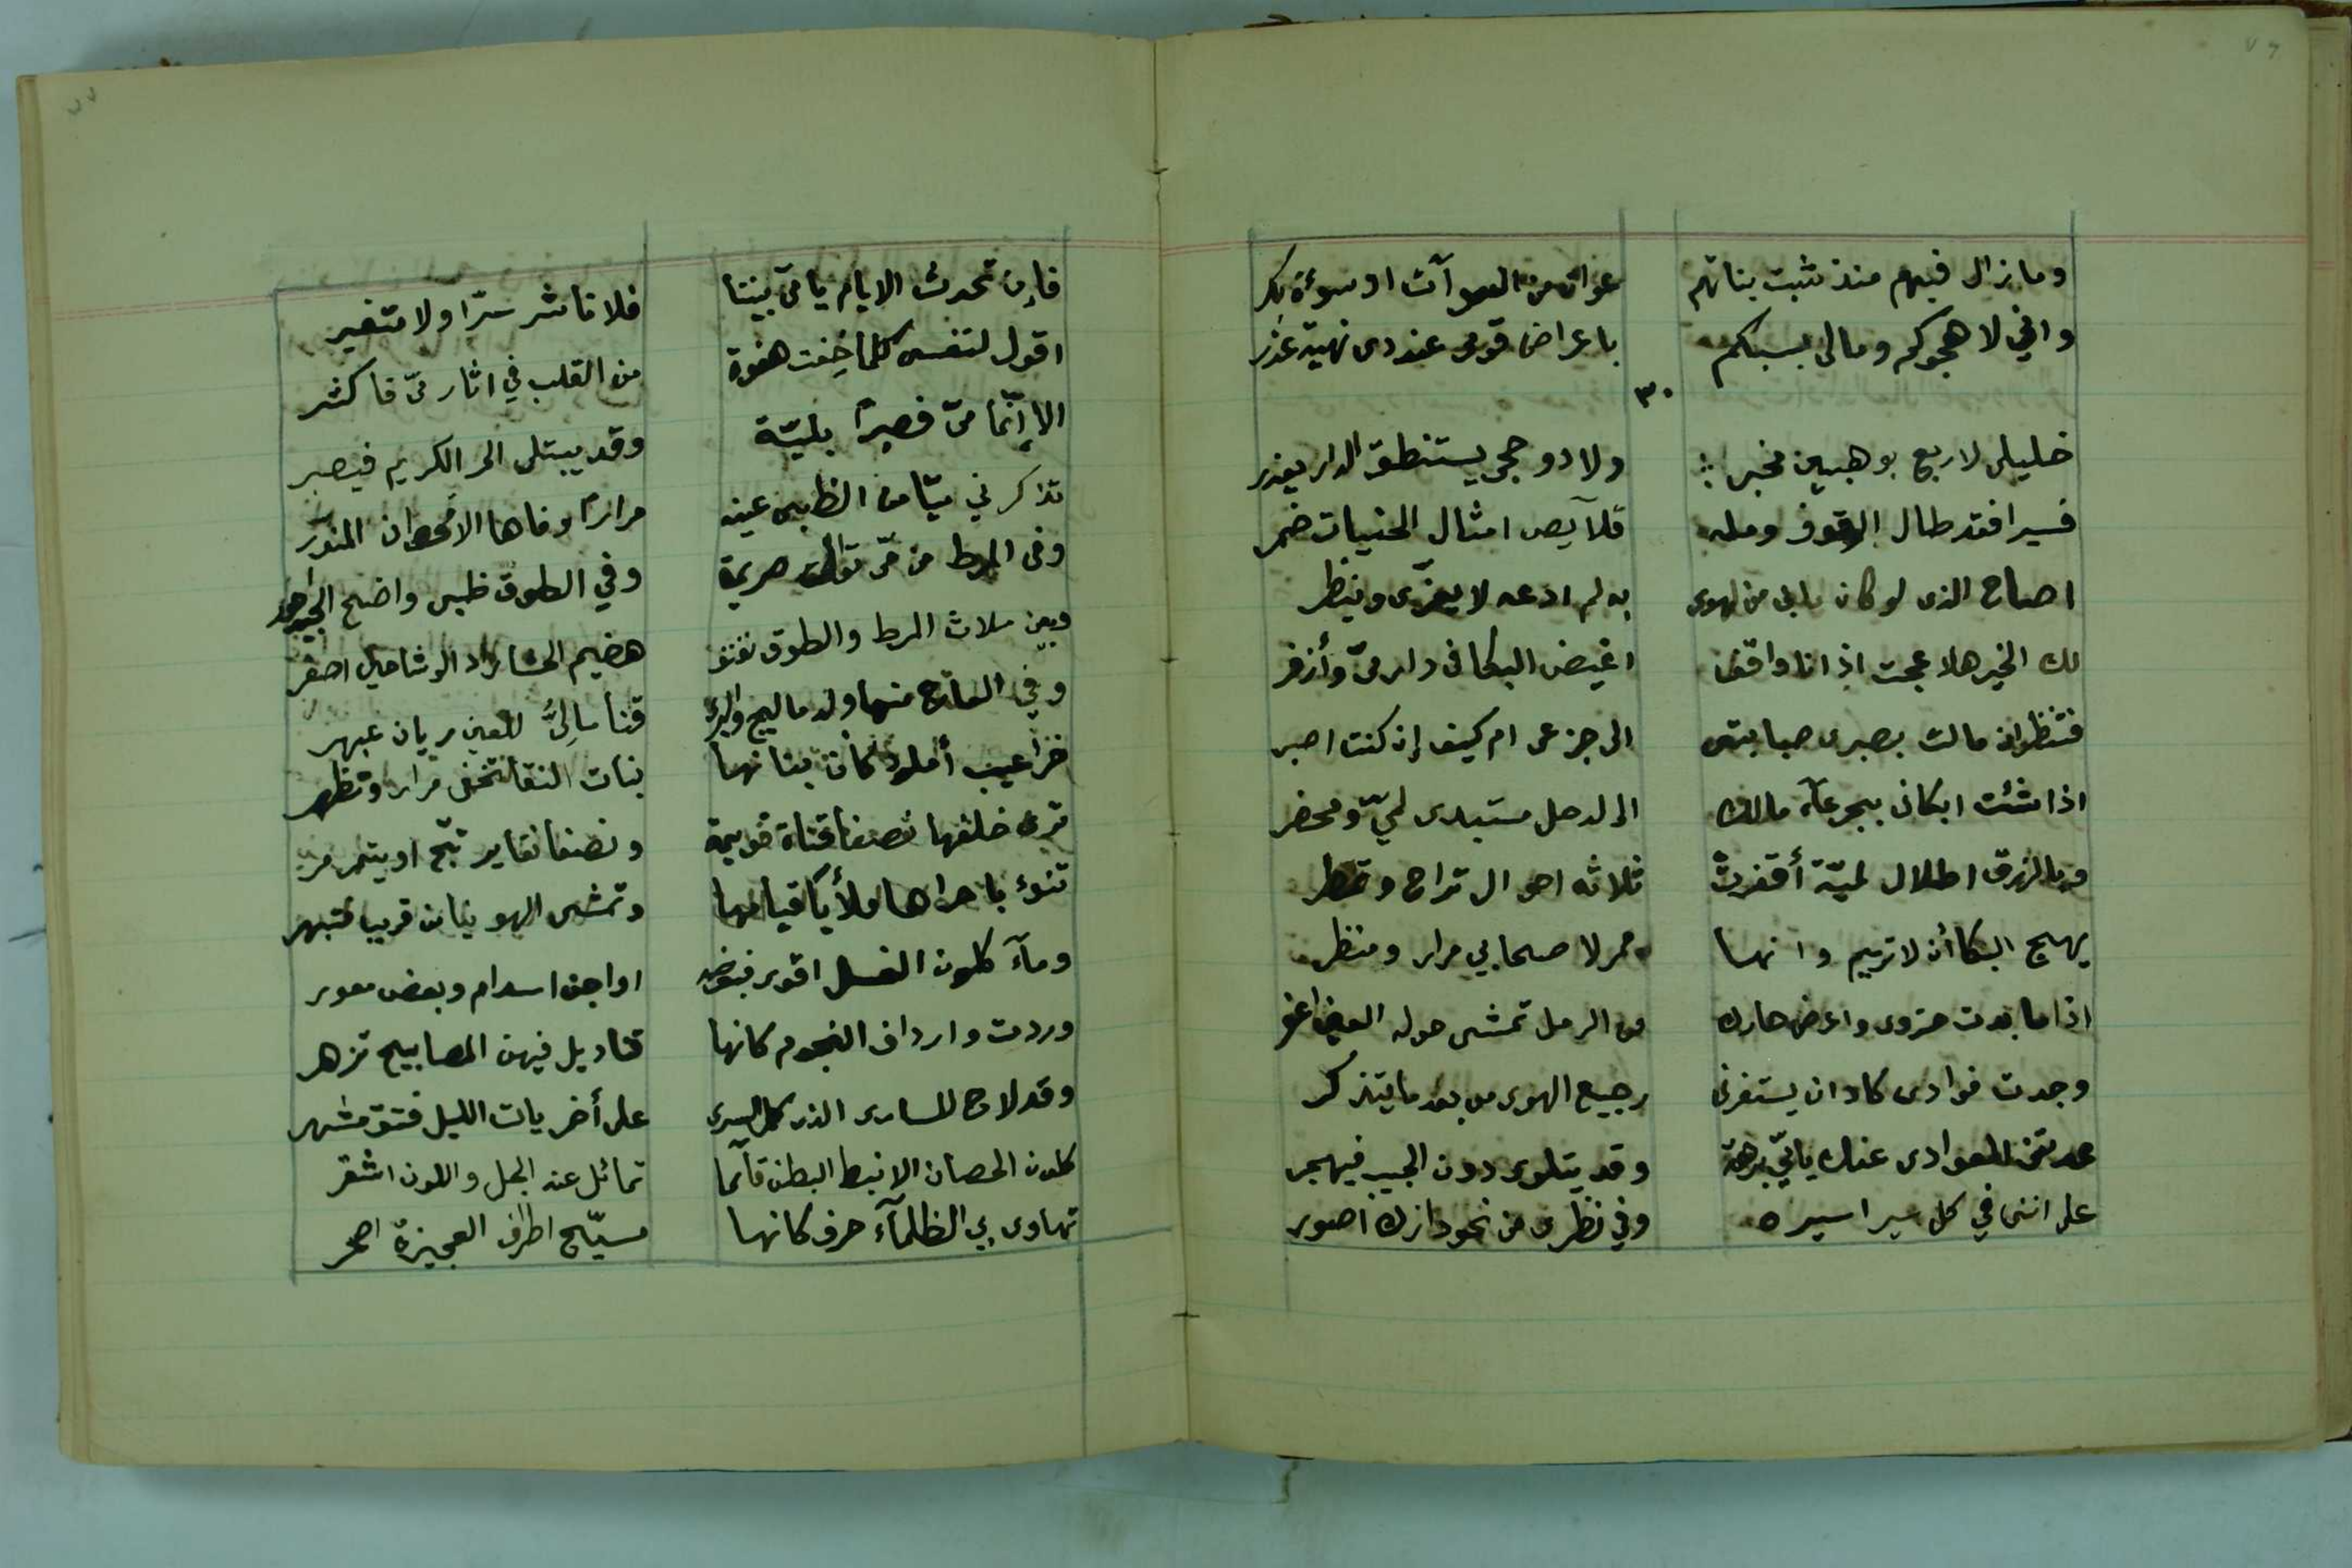 ٧٦
وما زال فيهم منذ شبت بناتهم عوان من السوآت او سوءة بكر
واني لاهجوكم ومالى بسبكم باعراض قومى عند ذى نهية عذر
٣٠
خليلى لا ربع بوهبين مخبر ولا ذو حجى يستنطق الدار يعذر
فسيرا فقد طال الوقوف ومله قلآيص امثال الحنيات ضمر
اصاح الذى لو كان ما بى من الهوى به لم ادعه لا يعزّى وينظر
لك الخير هلا عجت اذ انا واقف اغيض البكا فى دار مىّ وأزفر
فتنظر ان مالت بصبرى صبابتى الى جزعى ام كيف إن كنت اصبر
اذا شئت ابكانى بجرعآء مالك الى الدحل مستبدى لميّ ومحضر
وبالزرق اطلال لميّة أقفرت ثلاثه احوال تراح وتمطر
يهيج البكا أن لا تريم وانها ممر لا صحابي مرار ومنظر
اذا ما بدت حزوى واعرض حارك من الرمل تمشى حوله العين اعفر
وجدت فوادى كاد ان يستفزنى رجيع الهوى من بعد ما يتذكر
عدتنى العوادى عنك يا ميّ برهة وقد يتلوى دون الحبيب فيهجر
على اننى في كل سير اسيره وفي نظرى من نحو دارك اصور
٧٧
فإن تحدث الايام يا مىّ بيننا فلا ناشر سرّا ولا متغير
اقول لنفسى كلما خفت هفوة من القلب في اثار مىّ فاكثر
الا إنّما مىّ فصبرًا بليّة وقد يبتلى الحر الكريم فيصبر
تذكرني ميّا من الظبى عينه مرارًا وفاها الأقحوان المنوّر
وفى المرط من مىّ توالى صريمة وفي الطوق ظبى واضح الجيد احور
وبين ملاث المرط والطوق نفنف هضيم الحشا راد الوشاحين اصفر
وفي العاج منها والدماليج والبرى قنا مالئٌ للعين ريان عبهر
خراعيب أملود كأن بنانها بنات النقا تخفى مرارا وتظهر
ترى خلفها نصفا قناة قويمة ونصفا نقا يرتجّ او يتمرمر
تنوء باخراها فلأيا قيامها وتمشى الهوينا من قريب فتبهر
ومآء كلون الغسل اقوى فبعضه اواجن اسدام وبعض معور
وردت وارداف النجوم كانها قناديل فيهن المصابيح تزهر
وقد لاح للسارى الذى كمل السرى على أخريات الليل فتق مشهر
كلون الحصان الانبط البطن قآئما تمائل عنه الجل واللون اشقر
تهاوى بي الظلمآء حرف كانها مسيّح اطراف العجيزة اصحر